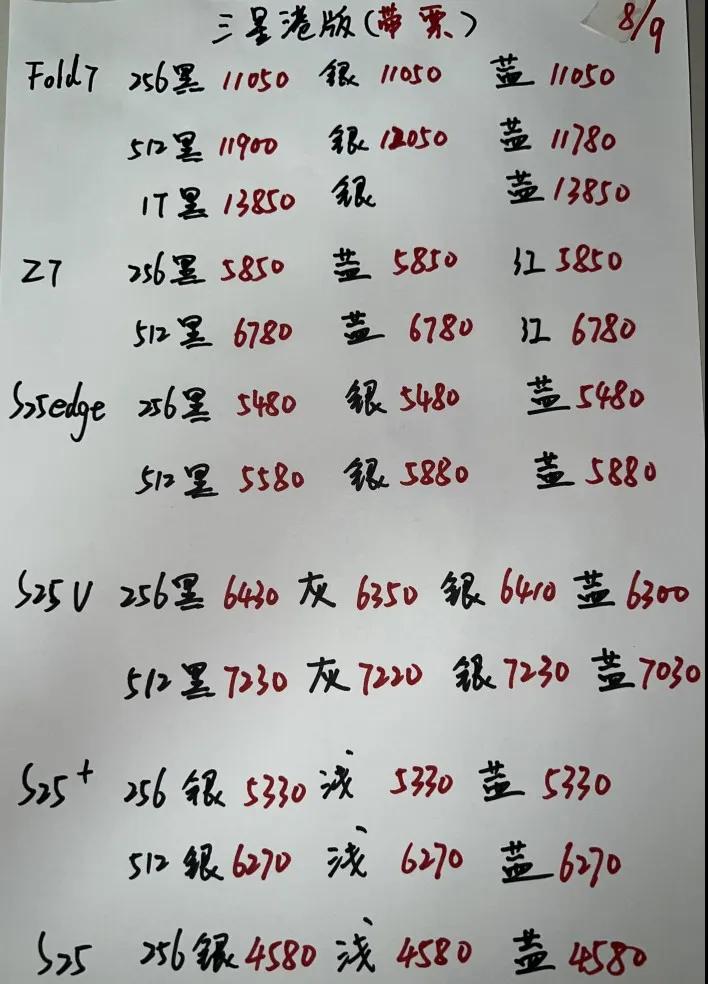 三星港版(带票) 8/9
Fold7 256黑 11050 銀 11050 蓝 11050
512黑 11900 銀 12050 蓝 11780
1T黑 13850 銀 蓝 13850
Z7 256黑 5850 蓝 5850 红 5850
512黑 6780 蓝 6780 红 6780
S25edge 256黑 5480 銀 5480 蓝 5480
512黑 5580 銀 5880 蓝 5880
S25U 256黑 6430 灰 6350 銀 6410 蓝 6300
512黑 7230 灰 7220 銀 7230 蓝 7030
S25+ 256 銀 5330 浅 5330 蓝 5330
512 銀 6270 浅 6270 蓝 6270
S25 256 銀 4580 浅 4580 蓝 4580